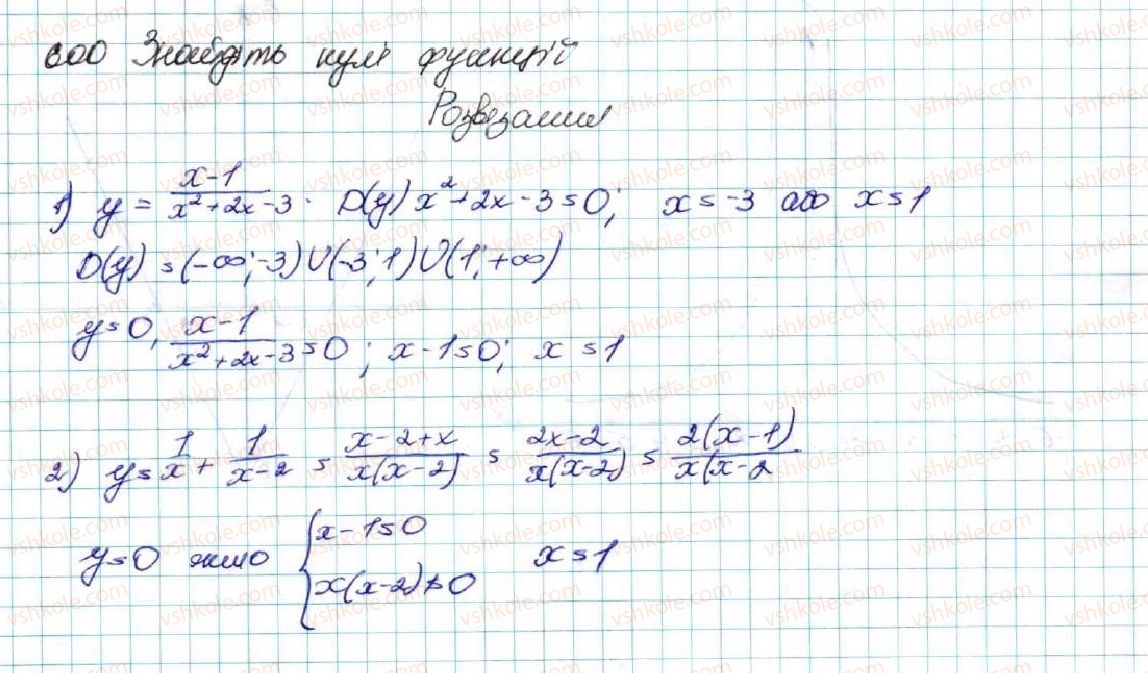 600 Знайдіть нулі функцій
Розвезання
1) y = (x-1)/(x²+2x-3). D(y) x²+2x-3=0; x=-3 або x=1
D(y)=(-∞;-3)U(-3;1)U(1;+∞)
y=0, (x-1)/(x²+2x-3)=0; x-1=0; x=1
2) y=1/x+1/(x-2) = (x-2+x)/(x(x-2)) = (2x-2)/(x(x-2)) = 2(x-1)/(x(x-2
y=0 якщо { x-1=0 x=1
x(x-2)≠0
vshkole.com